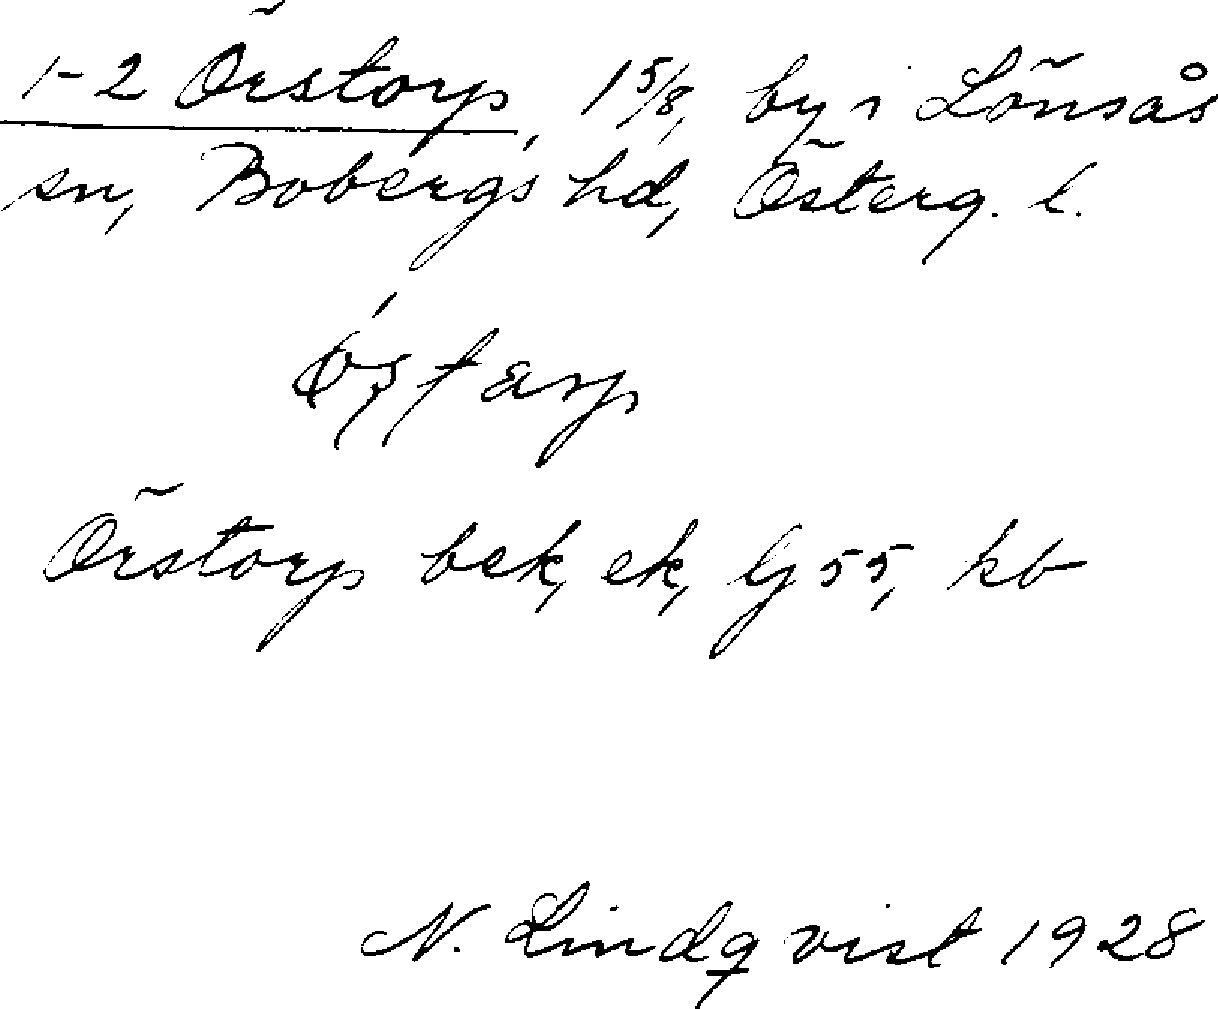 1-2 Örstorp, 1 5/8, by i Lönsås
sn, Bobergs hd, Österg. l.
Örstorp bek, ek, lj 55, kb
N. Lindqvist 1928